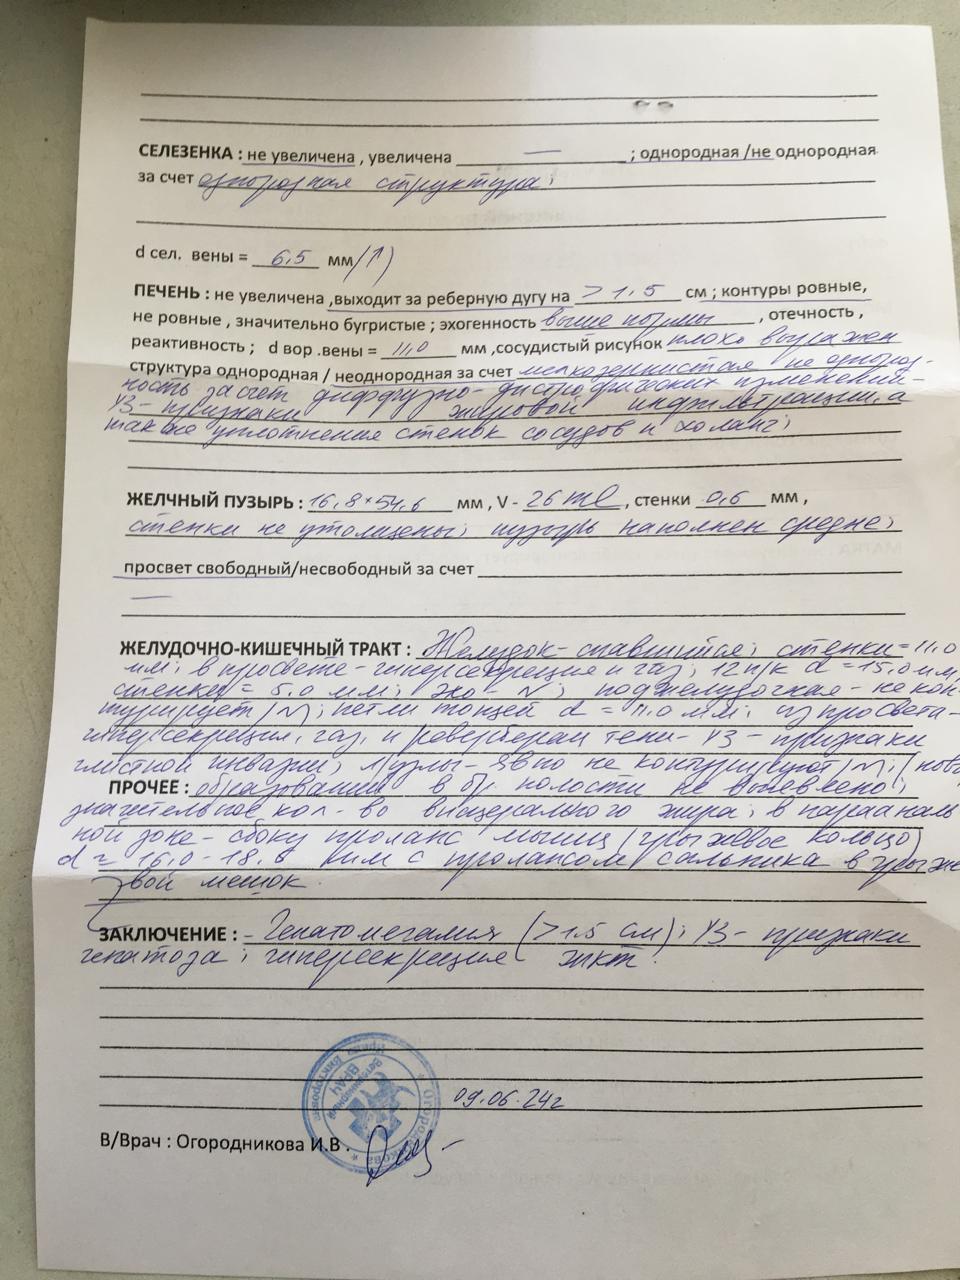 СЕЛЕЗЕНКА : не увеличена , увеличена — ; однородная /не однородная
за счет однородная структура;
d сел. вены = 6,5 мм (↑)
ПЕЧЕНЬ : не увеличена ,выходит за реберную дугу на >1,5 см ; контуры ровные,
не ровные , значительно бугристые ; эхогенность выше нормы , отечность ,
реактивность ; d вор .вены = 11,0 мм ,сосудистый рисунок плохо выражен
структура однородная / неоднородная за счет мелкозернистая неоднород-
ность за счет диффузно-дистрофических изменений-
УЗ-признаки жировой инфильтрации, а
также уплотнения стенок сосудов и холанг;
ЖЕЛЧНЫЙ ПУЗЫРЬ : 16,8×54,6 мм , V - 26 ml , стенки 0,6 мм ,
стенки не утолщены; пузырь наполнен средне;
просвет свободный/несвободный за счет
—
ЖЕЛУДОЧНО-КИШЕЧНЫЙ ТРАКТ : Желудок-спавшийся; стенки=11,0
мм; в просвете-гиперсекреция и газ; 12п/к d=15,0 мм,
стенки = 5,0 мм; эхо-N; поджелудочная-не кон-
турирует (N); петли тощей d = 11,0 мм; из просвета-
гиперсекреция, газ, и реверберац тени-УЗ-признаки
глистной инвазии; л/узлы-явно не контурируют (N); (ново
ПРОЧЕЕ : образований в бр. полости не выявлено;
значительное кол-во висцерального жира; в параналь
ной зоне-сбоку пролапс мышц (грыжевое кольцо)
d ≈ 16,0-18,0 мм с пролапсом сальника в грыже
вой мешок.
ЗАКЛЮЧЕНИЕ : - Гепатомегалия (>1,5 см); УЗ-признаки
гепатоза; гиперсекреция жкт.
ВРАЧ
09.06.24г
В/Врач : Огородникова И.В .